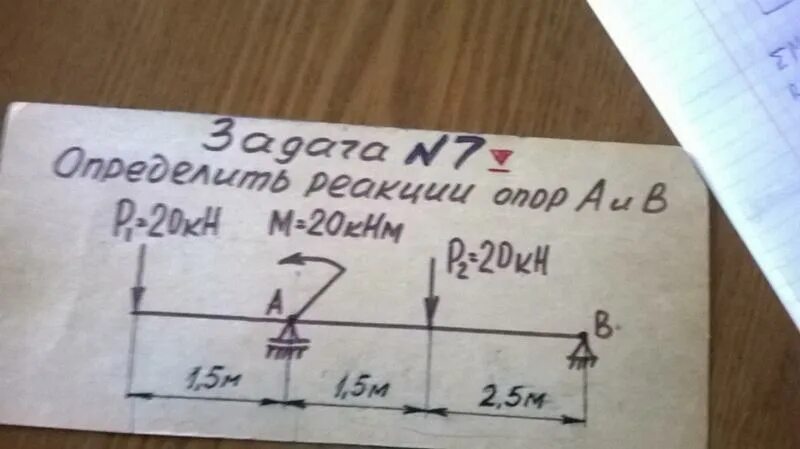 Задача N7
Определить реакции опор А и В
P₁=20кН М=20кНм
P₂=20кН
А
В
1,5м 1,5м 2,5м